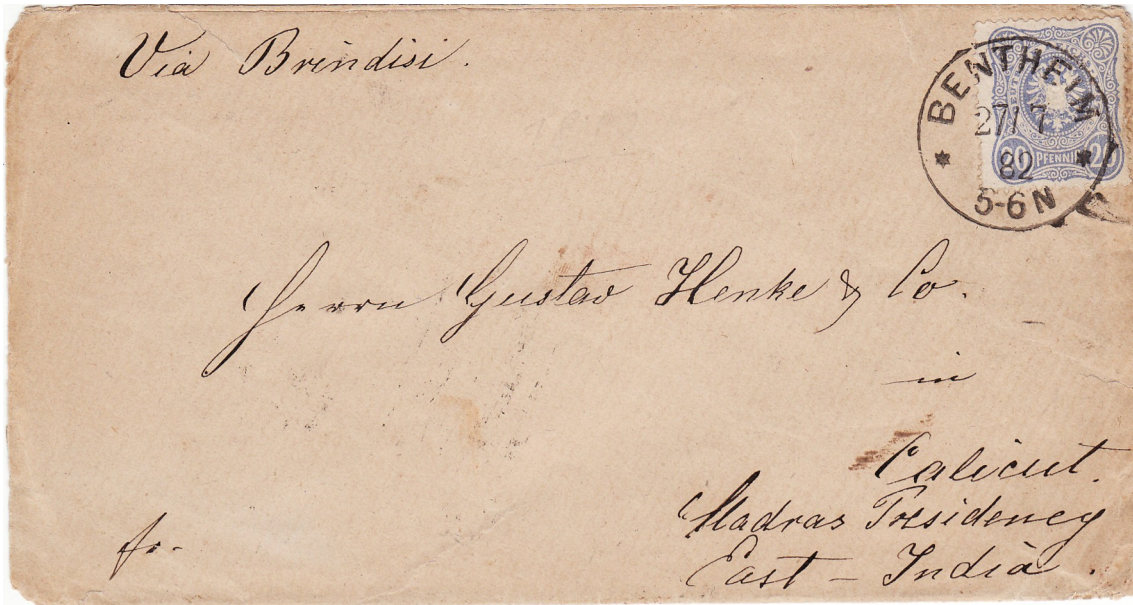 Via Brindisi.
BENTHEIM
27/7
82
5-6N
20 PFENNIG 20
Herrn Gustav Henke & Co.
in
Calicut.
Madras Presidency
East - India.
fr.